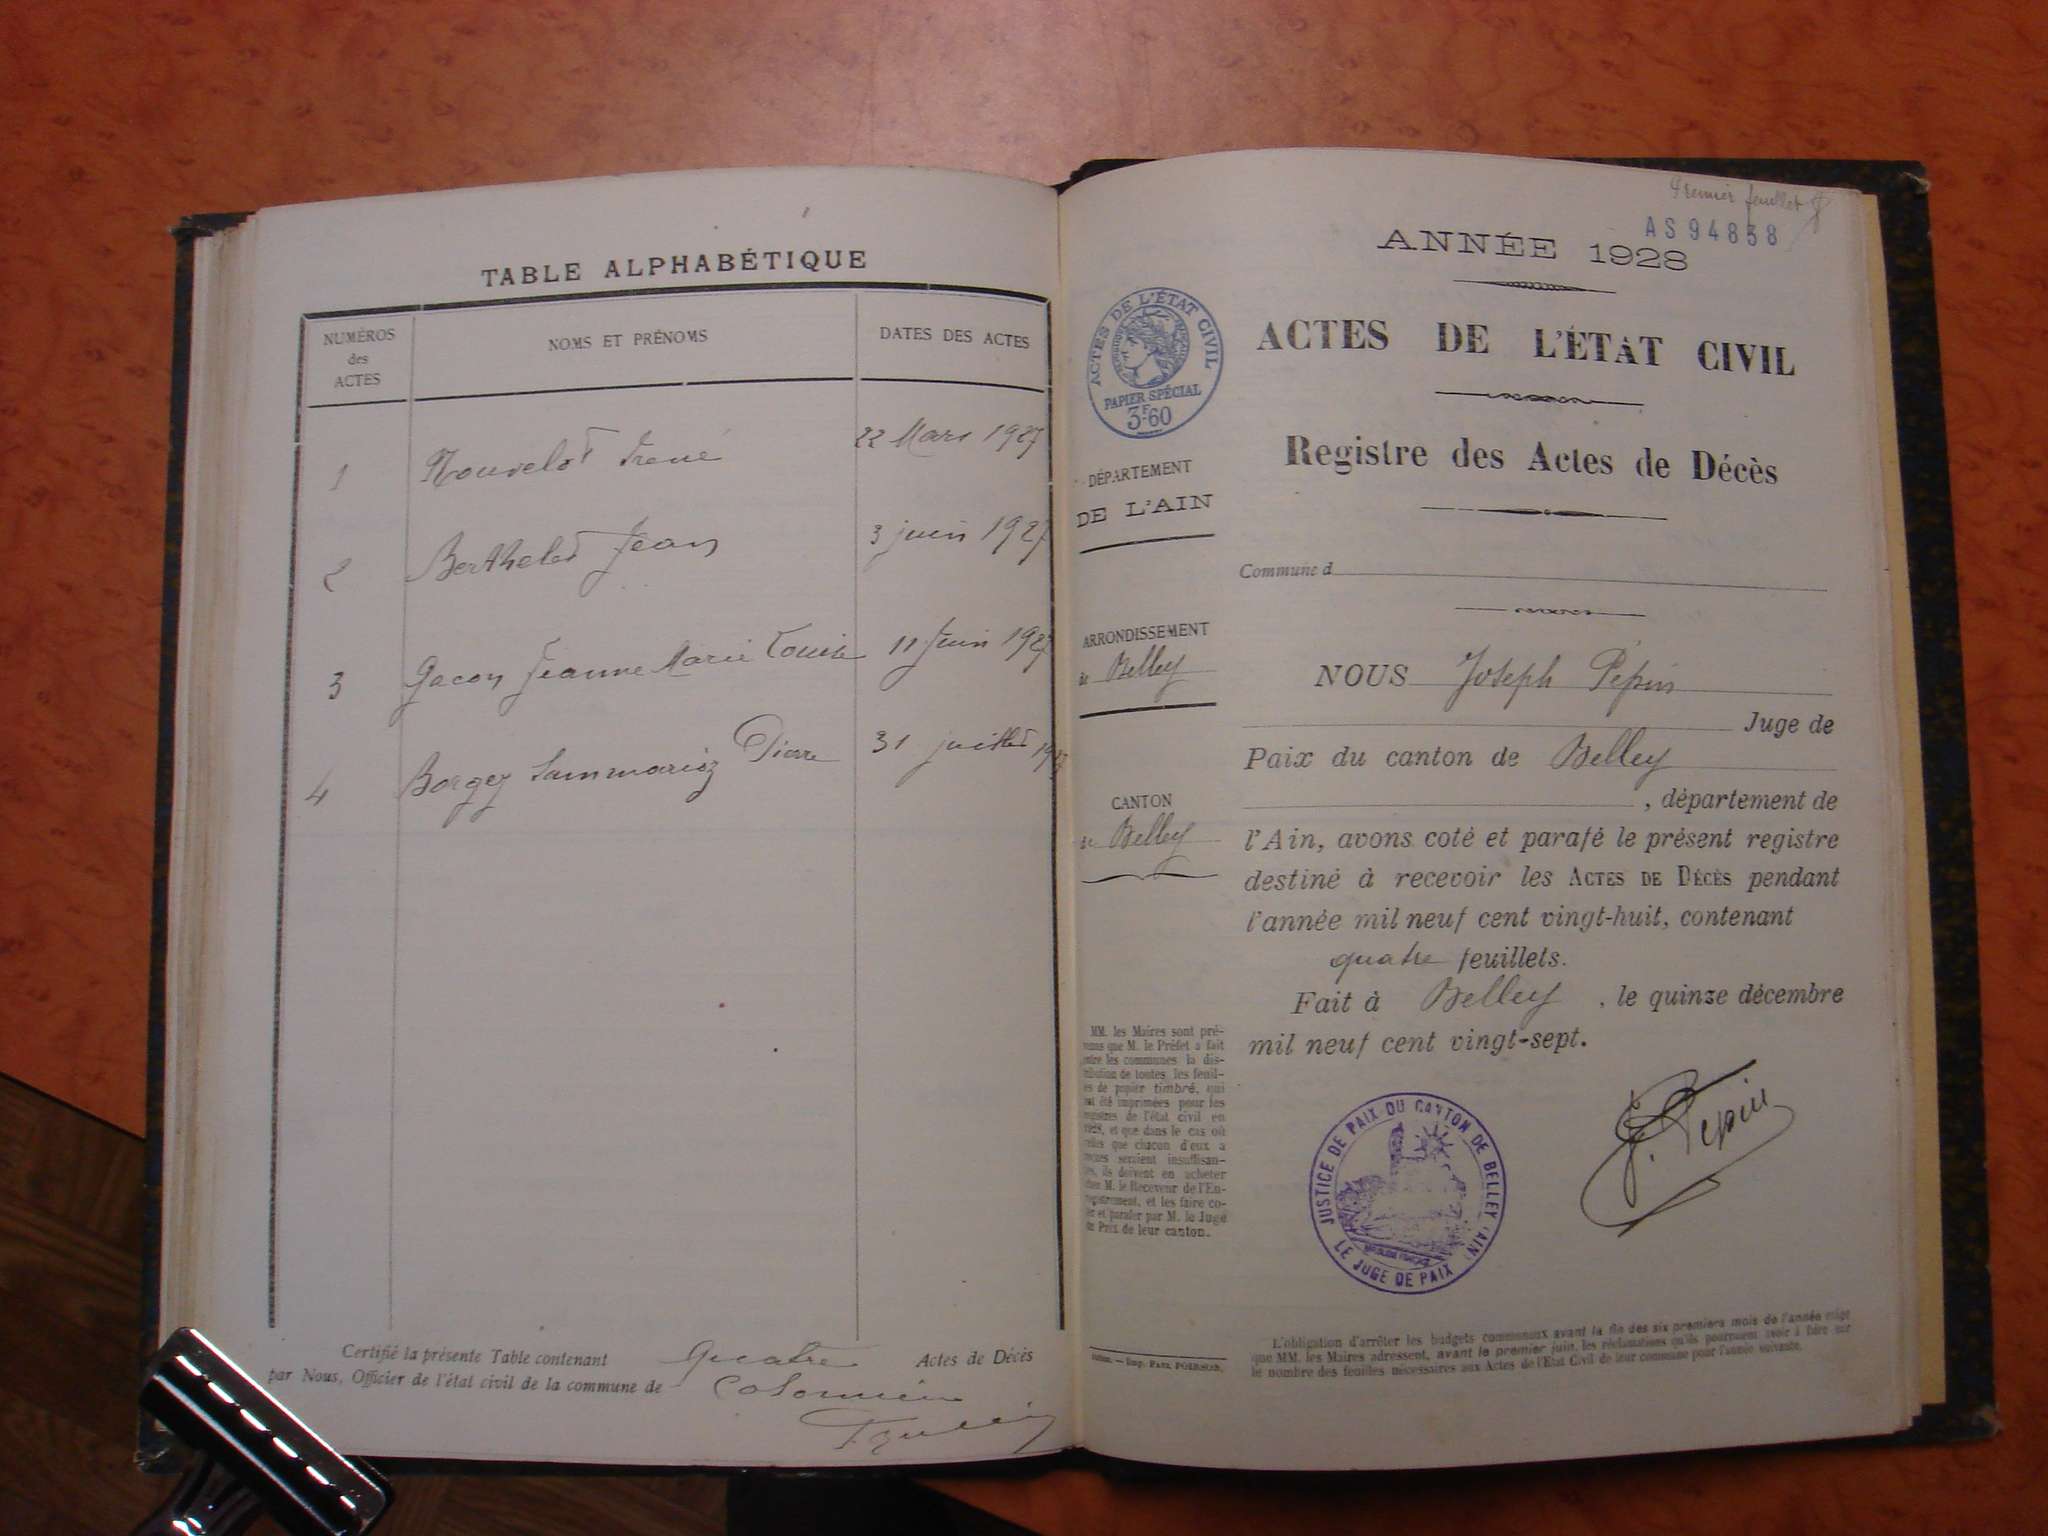 TABLE ALPHABÉTIQUE
NUMÉROS des ACTES
NOMS ET PRÉNOMS
DATES DES ACTES
1 Nouvelot Irené 22 Mars 1927
2 Berthelet Jean 3 juin 1927
3 Gacon Jeanne Marie Louise 11 Juin 1927
4 Borgey Sammariez Pierre 31 juillet 1927
Certifié la présente Table contenant quatre Actes de Décès
par Nous, Officier de l'état civil de la commune de Colomieu
Premier feuillet
AS 94838
ANNÉE 1928
ACTES DE L'ÉTAT CIVIL
PAPIER SPÉCIAL
3F.60
ACTES DE L'ÉTAT CIVIL
Registre des Actes de Décès
DÉPARTEMENT
DE L'AIN
Commune d
ARRONDISSEMENT
de Belley
NOUS Joseph Pépin
Juge de
Paix du canton de Belley
, département de
CANTON
de Belley
l'Ain, avons coté et parafé le présent registre
destiné à recevoir les ACTES DE DÉCÈS pendant
l'année mil neuf cent vingt-huit, contenant
quatre feuillets.
Fait à Belley, le quinze décembre
mil neuf cent vingt-sept.
MM. les Maires sont pré-
venus que M. le Préfet a fait
entre les communes la dis-
tribution de toutes les feuil-
les de papier timbré, qui
ont été imprimées pour les
registres de l'état civil en
1928, et que dans le cas où
celles que chacun d'eux a
reçues seraient insuffisan-
tes, ils doivent en acheter
chez M. le Receveur de l'En-
registrement, et les faire co-
ter et parafer par M. le Juge
de Paix de leur canton.
J. Pépin
JUSTICE DE PAIX DU CANTON DE BELLEY (AIN)
LE JUGE DE PAIX
Imp. PAUL POIRSON.
L'obligation d'arrêter les budgets communaux avant la fin des six premiers mois de l'année exige
que MM. les Maires adressent, avant le premier juin, les réclamations qu'ils pourraient avoir à faire sur
le nombre des feuilles nécessaires aux Actes de l'Etat Civil de leur commune pour l'année suivante.